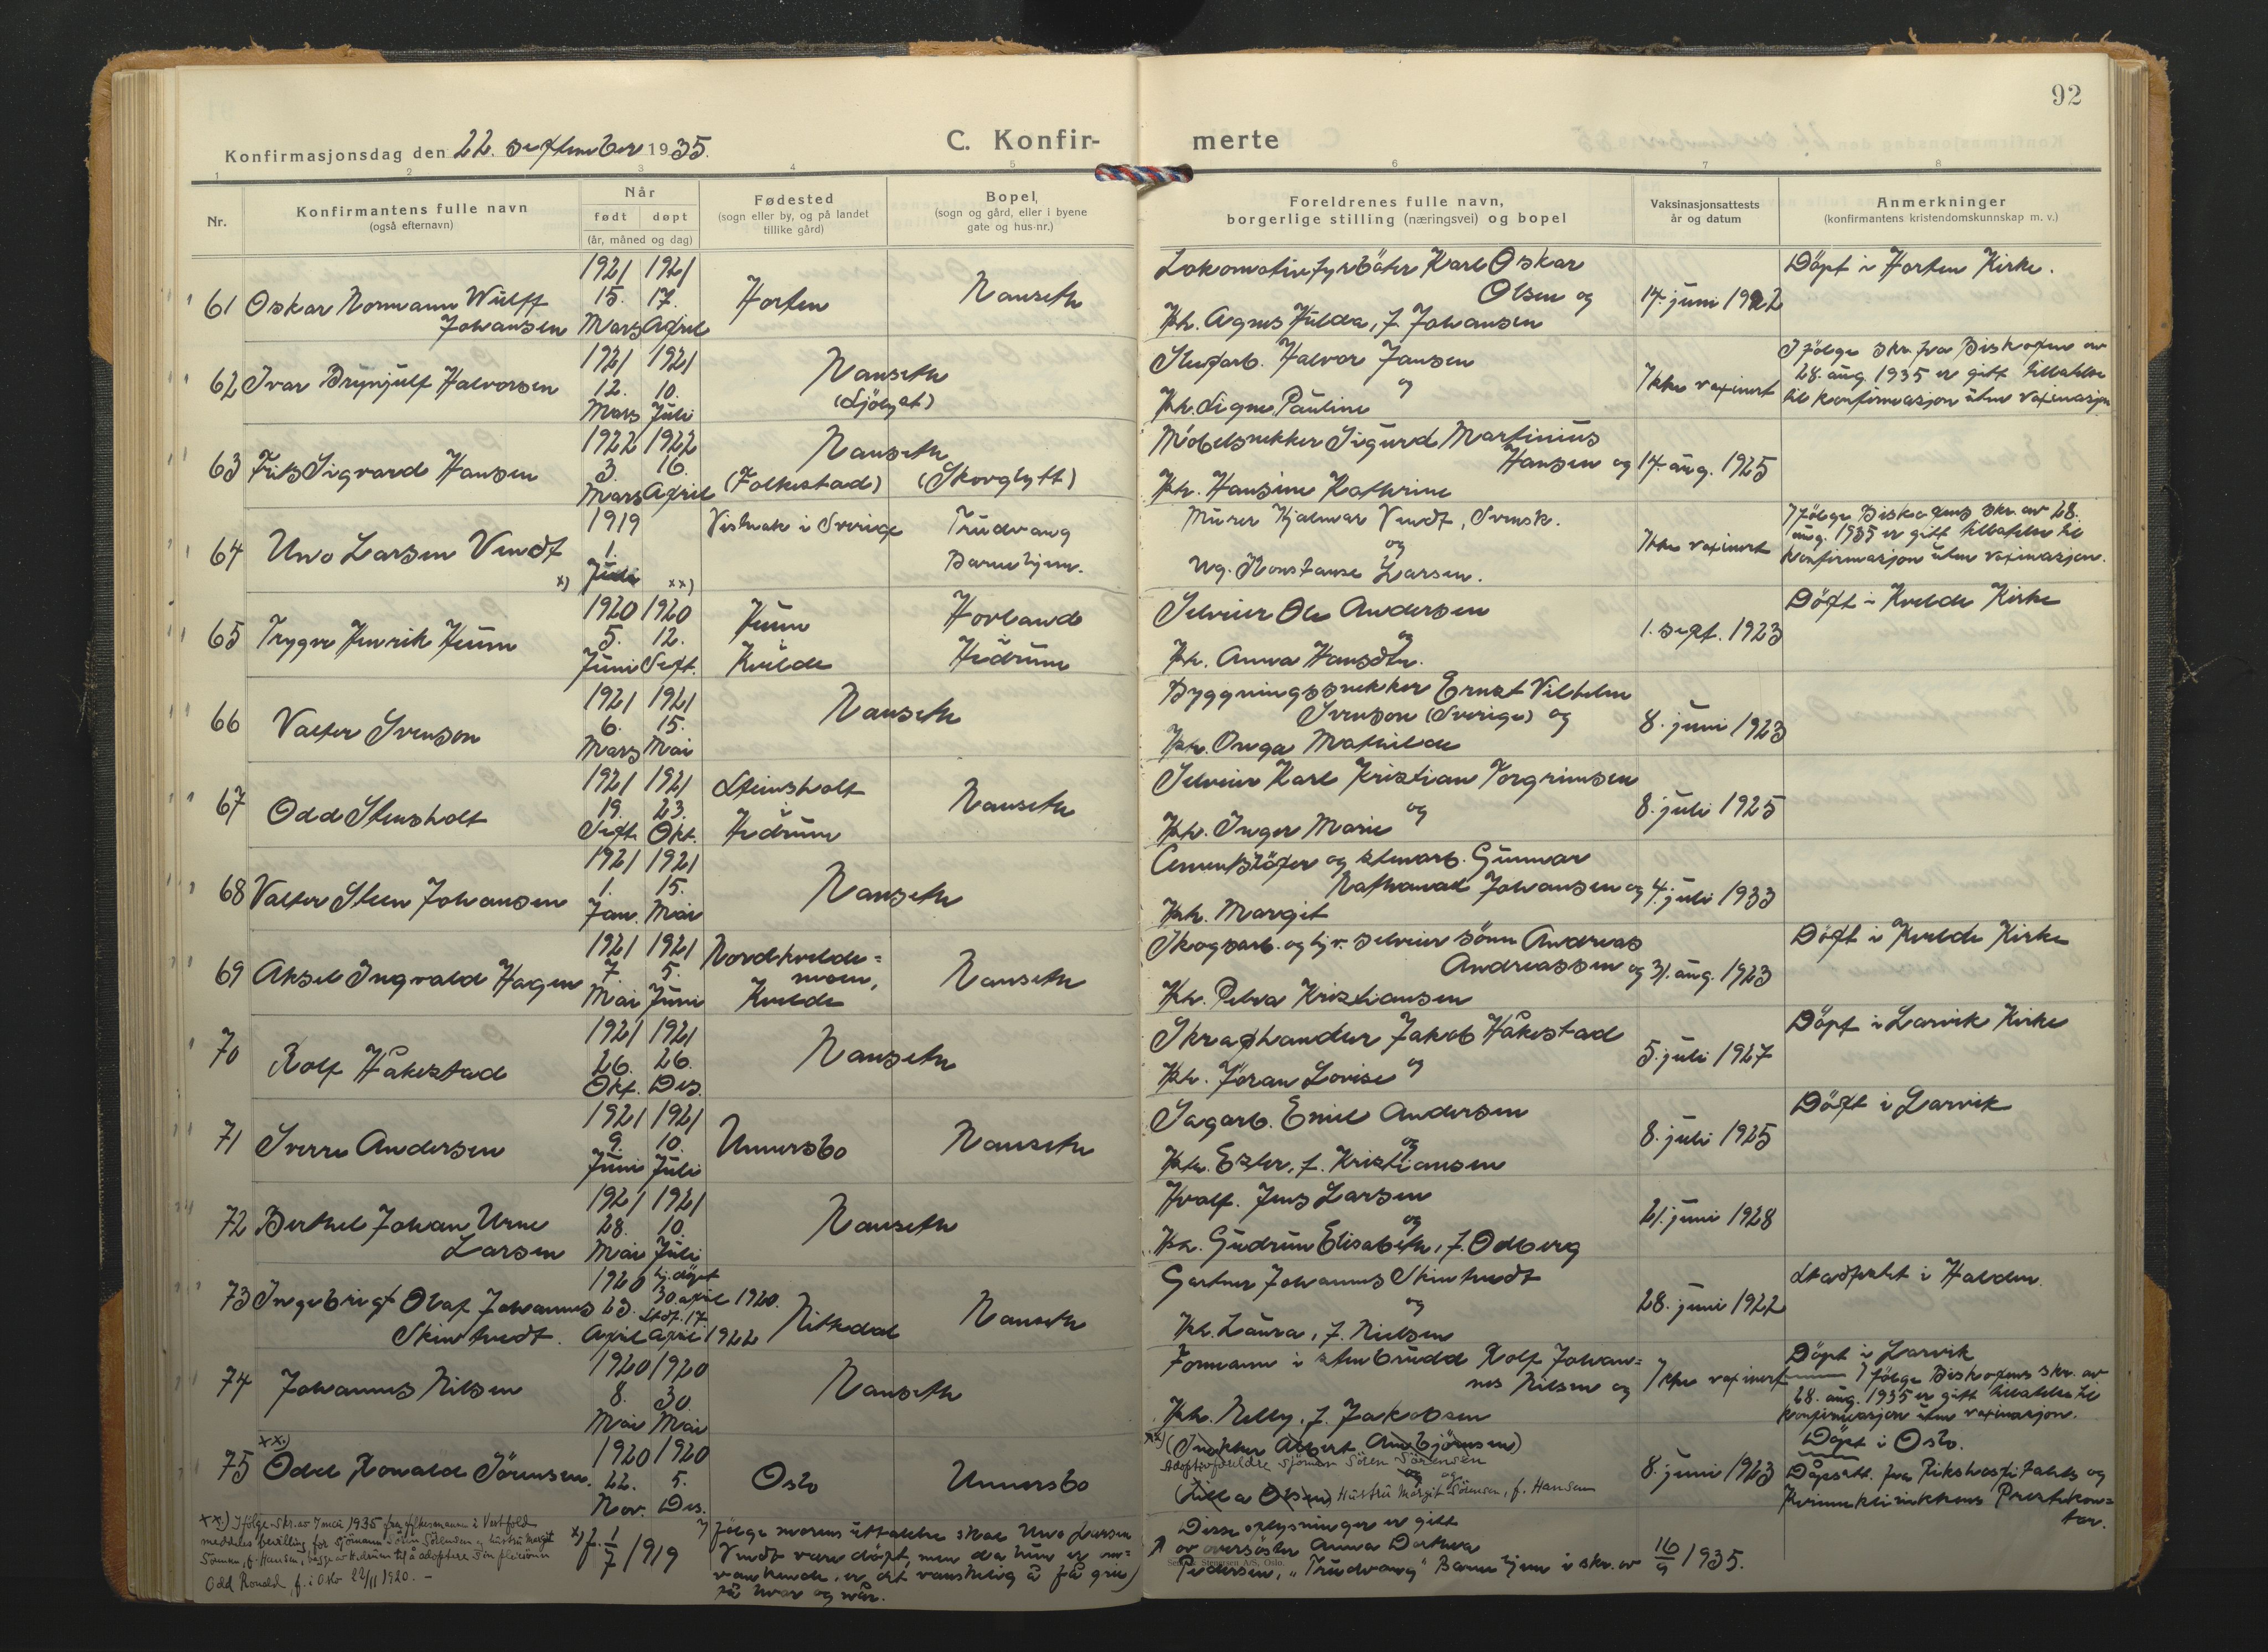 92
Konfirmasjonsdag den 22. september 1935.
C. Konfir- merte
1 2 3 4 5 6 7 8
Nr.
Konfirmantens fulle navn
(også efternavn)
Når
født døpt
(år, måned og dag)
Fødested
(sogn eller by, og på landet
tillike gård)
Bopel,
(sogn og gård, eller i byene
gate og hus-nr.)
Foreldrenes fulle navn,
borgerlige stilling (næringsvei) og bopel
Vaksinasjonsattests
år og datum
Anmerkninger
(konfirmantens kristendomskunnskap m. v.)
61 Oskar Normann Wulff
Johansen
1921 15. Mars
1921 17. April
Horten
Nanseth
Lokomotivfyrböter Karl Oskar
Olsen og
H. Agnes Hulda, f. Johansen
14. juni 1922
Döpt i Horten Kirke.
62 Ivar Brynjulf Halvorsen
1921 12. Mars
1921 10. Juli
Nanseth
(Sjölyst)
Halvor Jansen
og
H. Signe Pauline
Ikke vaxinert
I fölge skr. fra Biskopen av
28. aug. 1935 er gitt tillatelse
til konfirmasjon uten vaxinasjon
63 Frits Sigvard Hansen
1922 3. Mars
1922 16. April
Nanseth
(Folkestad) (Skoglytt)
Möbelsnekker Sigurd Martinius
Hansen og
H. Hansine Kathrine
14. aug. 1925
64 Uno Larsen Vendt
x)
1919 1. Juli
xx)
i Sverige
Trudvang
Barnehjem.
Murer Hjalmar Vendt, Svensk.
og
Ug. Konstanse Larsen.
Ikke vaxinert
I fölge Biskopens skr. av 28.
aug. 1935 er gitt tillatelse til
konfirmasjon uten vaxinasjon.
65 Trygve Henrik Heum
1920 5. Juni
1920 12. Sept.
Heum
Kvelde
Horland
i
Hedrum
Selveier Ole Andersen
og
H. Anna Hansdtr.
1. sept. 1923
Döpt i Kvelde Kirke
66 Valter Svenson
1921 6. Mars
1921 15. Mai
Nanseth
Byggningssnekker Ernst Vilhelm
Svenson (Sverige) og
H. Inga Mathilde
8. juni 1923
67 Odd Stensholt
1921 19. Sept.
1921 23. Okt.
Steinsholt
i
Hedrum
Nanseth
Selveier Karl Kristian Torgrimsen
og
H. Inger Marie
8. juli 1925
68 Valter Steen Johansen
1921 1. Jan.
1921 15. Mai
Nanseth
Cementstöper og stenarb. Gunnar
Nathanael Johansen og
H. Margit
4. juli 1933
69 Aksel Ingvald Hagen
1921 7. Mai
1921 5. Juni
Nordkvelde=
moen,
Kvelde
Nanseth
Skogsarb. og hj.v. selveier sönn Andreas
Andreassen og
H. Petra Kristiansen
31. aug. 1923
Döpt i Kvelde Kirke
70 Rolf Håkestad
1921 26. Okt.
1921 26. Des.
Nanseth
Skraphandler Jakob Håkestad
og
H. Jöran Lovise
5. juli 1927
Döpt i Larvik Kirke
71 Sverre Andersen
1921 9. Juni
1921 10. Juli
Unnersbo
Nanseth
Sagarb. Emil Andersen
og
H. Ester, f. Kristiansen
8. juli 1925
Döpt i Larvik
72 Berthel Johan Urne
Larsen
1921 28. Mai
1921 10. Juli
Nanseth
Hvalf. Jens Larsen
og
H. Gudrun Elisabeth, f. Odberg
21. juni 1928
73 Ingebrigt Olaf Johannes
Skinstvedt.
1920 23. April
hj.döpt 30. april 1920.
Stdf. 17. April 1922
Nittedal
Nanseth
Gartner Johannes Skinstvedt
og
H. Laura, f. Nielsen
28. juni 1922
Stadfestet i Halden.
74 Johannes Nilsen
1920 8. Mai
1920 30. Mai
Nanseth
Formann i stenbrudd Rolf Johan=
nes Nilsen og
H. Nelly, f. Jakobsen
Ikke vaxinert
Döpt i Larvik
I fölge Biskopens skr. av
28. aug. 1935 er gitt tillatelse til
konfirmasjon uten vaxinasjon.
xx)
75 Odd Ronald Sörensen.
1920 22. Nov.
1920 5. Des.
Oslo
Unnersbo
xx) (Snekker Albert Arnbjörnsen)
Adoptivforeldre Sjömann Sören Sörensen
og
(Olsen) Hustru Margit Sörensen, f. Hansen
8. juni 1923
Döpt i Oslo.
Dåpsatt. fra Rikshospitalets og
Kvinneklinikkens Prestekon=
tor.
xx) Ifölge skr. av 7 mai 1935 fra fylkesmannen i Vestfold
meddeles bevilling for sjömann Sören Sörensen og hustru Margit
Sörensen, f. Hansen, begge av Hedrum til å adoptere sin pleiesönn
Odd Ronald, f. i Oslo 22/11 1920. –
x) f. 1/7 1919
x) Ifölge morens uttalelse skal Uno Larsen
Vendt være döpt, men da hun er om=
vankende, er det vanskelig å få greie
på hvor og når.
Disse oplysninger er gitt
av oversöster Anna Dorthea
Sem & Stenersen A/S, Oslo.
Pedersen, "Trudvang" Barnehjem i skr. av 16/9 1935.